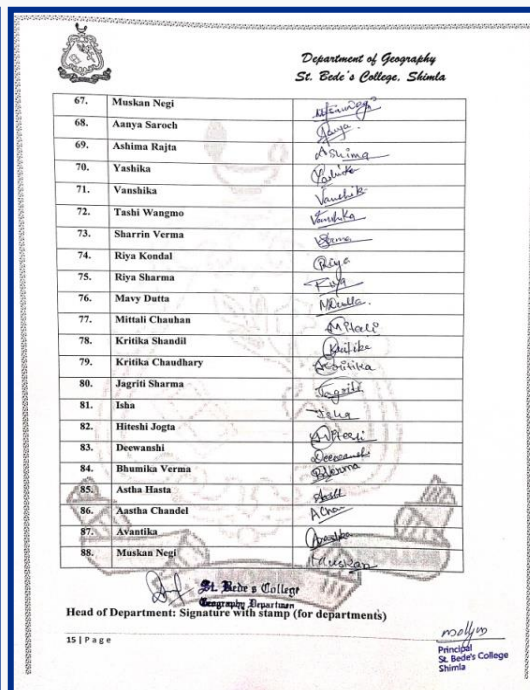 Department of Geography
St. Bede's College, Shimla
67. Muskan Negi
68. Aanya Saroch Aanya
69. Ashima Rajta Ashima
70. Yashika Yashika
71. Vanshika Vanshika
72. Tashi Wangmo Vanshika
73. Sharrin Verma
74. Riya Kondal Riya
75. Riya Sharma Riya
76. Mavy Dutta MDutta.
77. Mittali Chauhan Mitali
78. Kritika Shandil Kritika
79. Kritika Chaudhary Kritika
80. Jagriti Sharma Jagriti
81. Isha Isha
82. Hiteshi Jogta
83. Deewanshi
84. Bhumika Verma BVerma
85. Astha Hasta
86. Aastha Chandel
87. Avantika
88. Muskan Negi Muskan
St. Bede's College
Geography Departmen
Head of Department: Signature with stamp (for departments)
15 | P a g e
Principal
St. Bede's College
Shimla